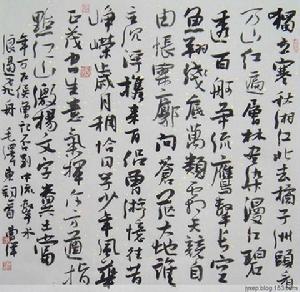 獨立寒秋湘江北去橘子洲頭看
万山红遍層林盡染漫江碧
透百舸争流鷹擊長空
魚翔淺底萬類霜天競自
由悵寥廓問蒼茫大地誰
主沉浮携来百侣曾游憶往昔
崢嶸歲月稠恰同學少年風華
正茂書生意氣揮斥方遒指
點江山激揚文字糞土當
年万户侯曾記否到中流擊水
浪遏飛舟 毛澤東詞